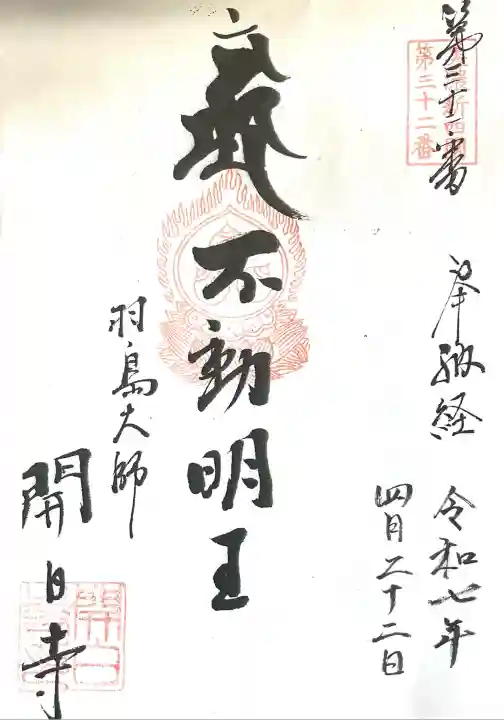 第三十二番
奉納経
令和七年
四月二十二日
不動明王
羽島大師
開白寺
第三十二番